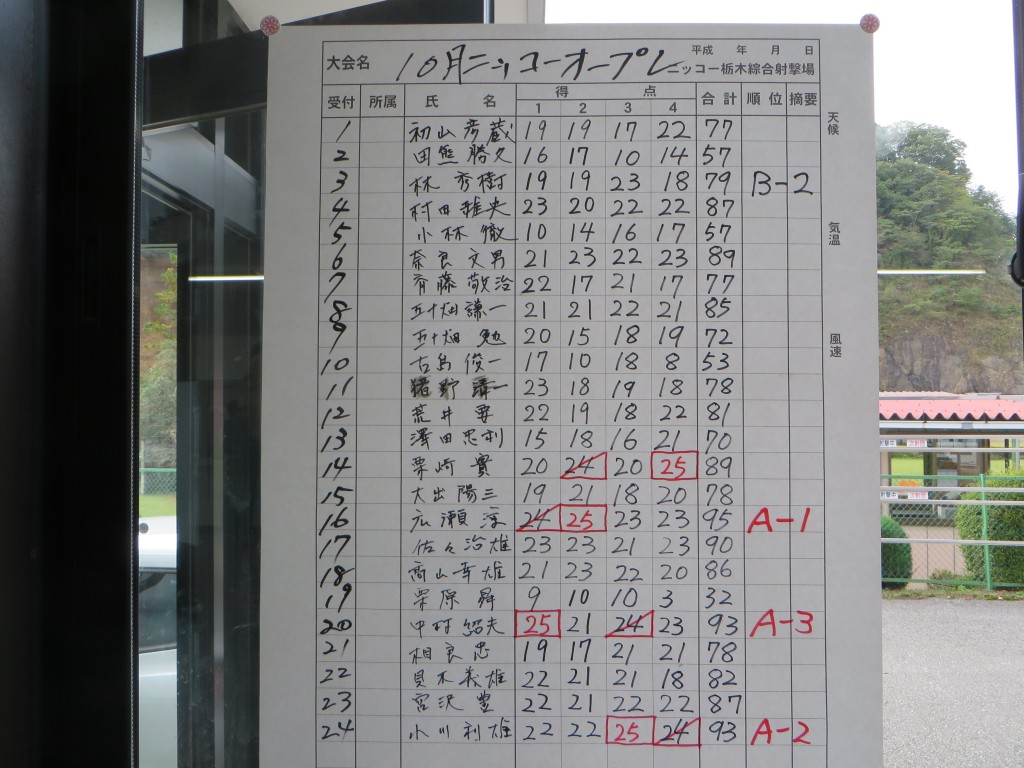 平成 年 月 日
大会名 10月ニッコーオープン ニッコー栃木綜合射撃場
受付 所属 氏 名 得 点 合計 順位 摘要
1 2 3 4
天候
1 初山彦蔵 19 19 17 22 77
2 田熊勝久 16 17 10 14 57
3 林秀樹 19 19 23 18 79 B-2
4 村田雅央 23 20 22 22 87
気温
5 小林徹 10 14 16 17 57
6 奈良文男 21 23 22 23 89
7 斉藤敬治 22 17 21 17 77
8 五十畑謙一 21 21 22 21 85
風速
9 五十畑勉 20 15 18 19 72
10 古島俊一 17 10 18 8 53
11 23 18 19 18 78
12 荒井要 22 19 18 22 81
13 澤田忠利 15 18 16 21 70
14 栗崎實 20 24 20 25 89
15 大出陽三 19 21 18 20 78
16 広瀬淳 24 25 23 23 95 A-1
17 佐々治雄 23 23 21 23 90
18 高山幸雄 21 23 22 20 86
19 栗原昇 9 10 10 3 32
20 中村紹夫 25 21 24 23 93 A-3
21 相良忠 19 17 21 21 78
22 見木義雄 22 21 21 18 82
23 宮沢豊 22 21 22 22 87
24 小川利雄 22 22 25 24 93 A-2